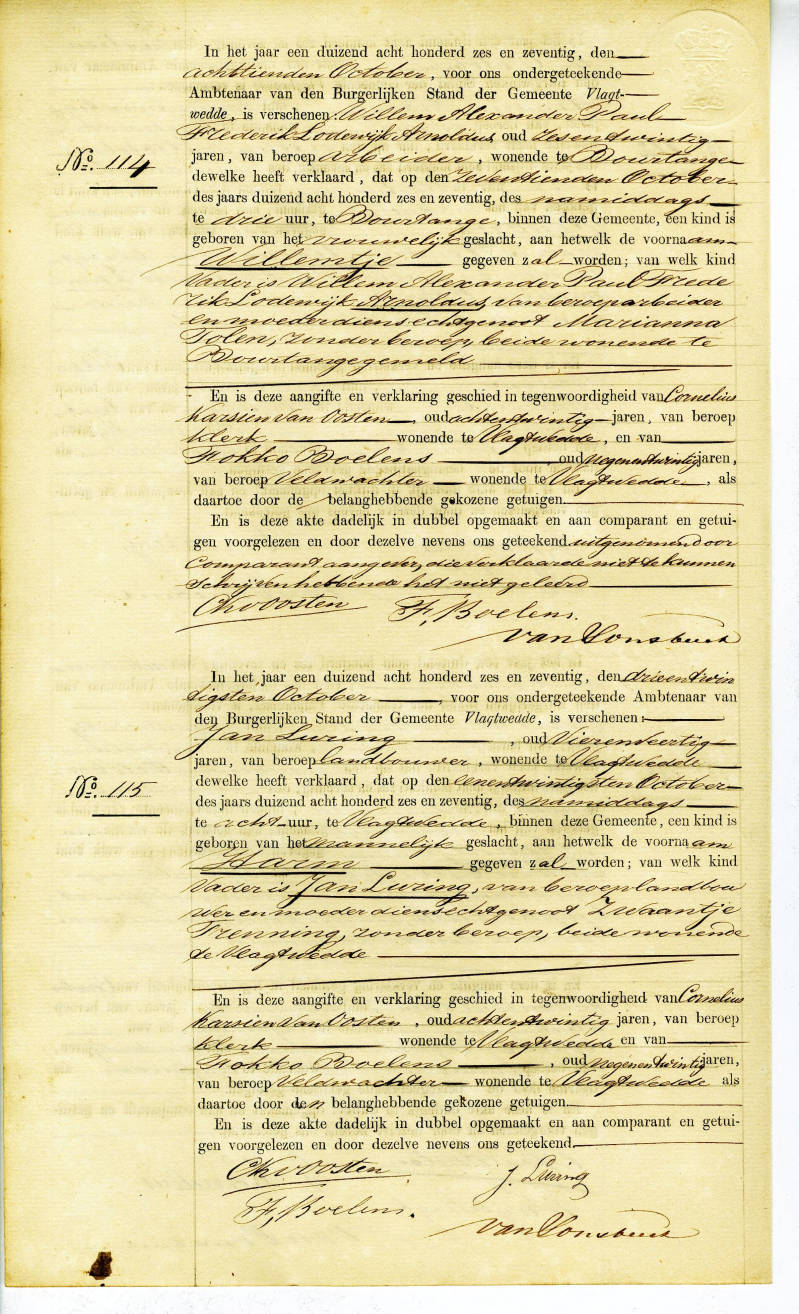 In het jaar een duizend acht honderd zes en zeventig, den
achttienden October, voor ons ondergeteekende
Ambtenaar van den Burgerlijken Stand der Gemeente Vlagt-
wedde, is verschenen: Willem Alexander Paul
Frederik Lodewijk Arnoldus, oud zesentwintig
No. 114
jaren, van beroep arbeider, wonende te Bourtange
dewelke heeft verklaard, dat op den zeventienden October
des jaars duizend acht honderd zes en zeventig, des namiddags
te drie uur, te Bourtange, binnen deze Gemeente, een kind is
geboren van het vrouwelijk geslacht, aan hetwelk de voornaam
Willemtje gegeven zal worden; van welk kind
Vader is Willem Alexander Paul Frede
rik Lodewijk Arnoldus, van beroep arbeider
en moeder diens echtgenoot Marianna
Tolen, zonder beroep, beide wonende te
Bourtange gemeld
En is deze aangifte en verklaring geschied in tegenwoordigheid van Cornelius
Karsien van Oosten, oud achtentwintig jaren, van beroep
klerk wonende te Vlagtwedde, en van
Fokko Boelens, oud negenentwintig jaren,
van beroep Veldwachter wonende te Vlagtwedde, als
daartoe door de belanghebbende gekozene getuigen.
En is deze akte dadelijk in dubbel opgemaakt en aan comparant en getui-
gen voorgelezen en door dezelve nevens ons geteekend uitgenomen door
comparant aangever, die verklaarde niet te kunnen
schrijven hebbende het niet geleerd
CKvOosten F. Boelens.
In het jaar een duizend acht honderd zes en zeventig, den drieentwin
tigsten October, voor ons ondergeteekende Ambtenaar van
den Burgerlijken Stand der Gemeente Vlagtwedde, is verschenen:
Jan Luring, oud Vierenveertig
jaren, van beroep landbouwer, wonende te Vlagtwedde
No. 115
dewelke heeft verklaard, dat op den eenentwintigsten October
des jaars duizend acht honderd zes en zeventig, des namiddags
te acht uur, te Vlagtwedde, binnen deze Gemeente, een kind is
geboren van het mannelijk geslacht, aan hetwelk de voornaam
Harm gegeven zal worden; van welk kind
Vader is Jan Luring, van beroep landbou
wer en moeder diens echtgenoot Zwaantje
Trenning, zonder beroep, beide wonende
te Vlagtwedde
En is deze aangifte en verklaring geschied in tegenwoordigheid van Cornelius
Karsien van Oosten, oud achtentwintig jaren, van beroep
klerk wonende te Vlagtwedde en van
Fokko Boelens, oud negenentwintig jaren,
van beroep Veldwachter wonende te Vlagtwedde als
daartoe door den belanghebbende gekozene getuigen.
En is deze akte dadelijk in dubbel opgemaakt en aan comparant en getui-
gen voorgelezen en door dezelve nevens ons geteekend.
CKvOosten J. Luring
F. Boelens.